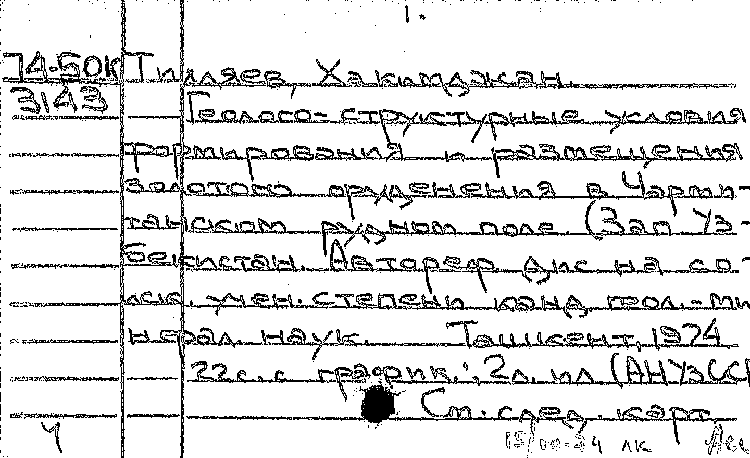 1.
74-50К Тилляев, Хакимджан.
3143 Геолого-структурные условия
формирования и размещения
золотого оруденения в Чарми-
танском рудном поле. (Зап Уз-
бекистан. Автореф дис на со-
иск. учен. степени канд геол.-ми
нерал. наук. Ташкент, 1974
22 с. с график.; 2 л. ил (АН УзССР
См. след. карт
Ч